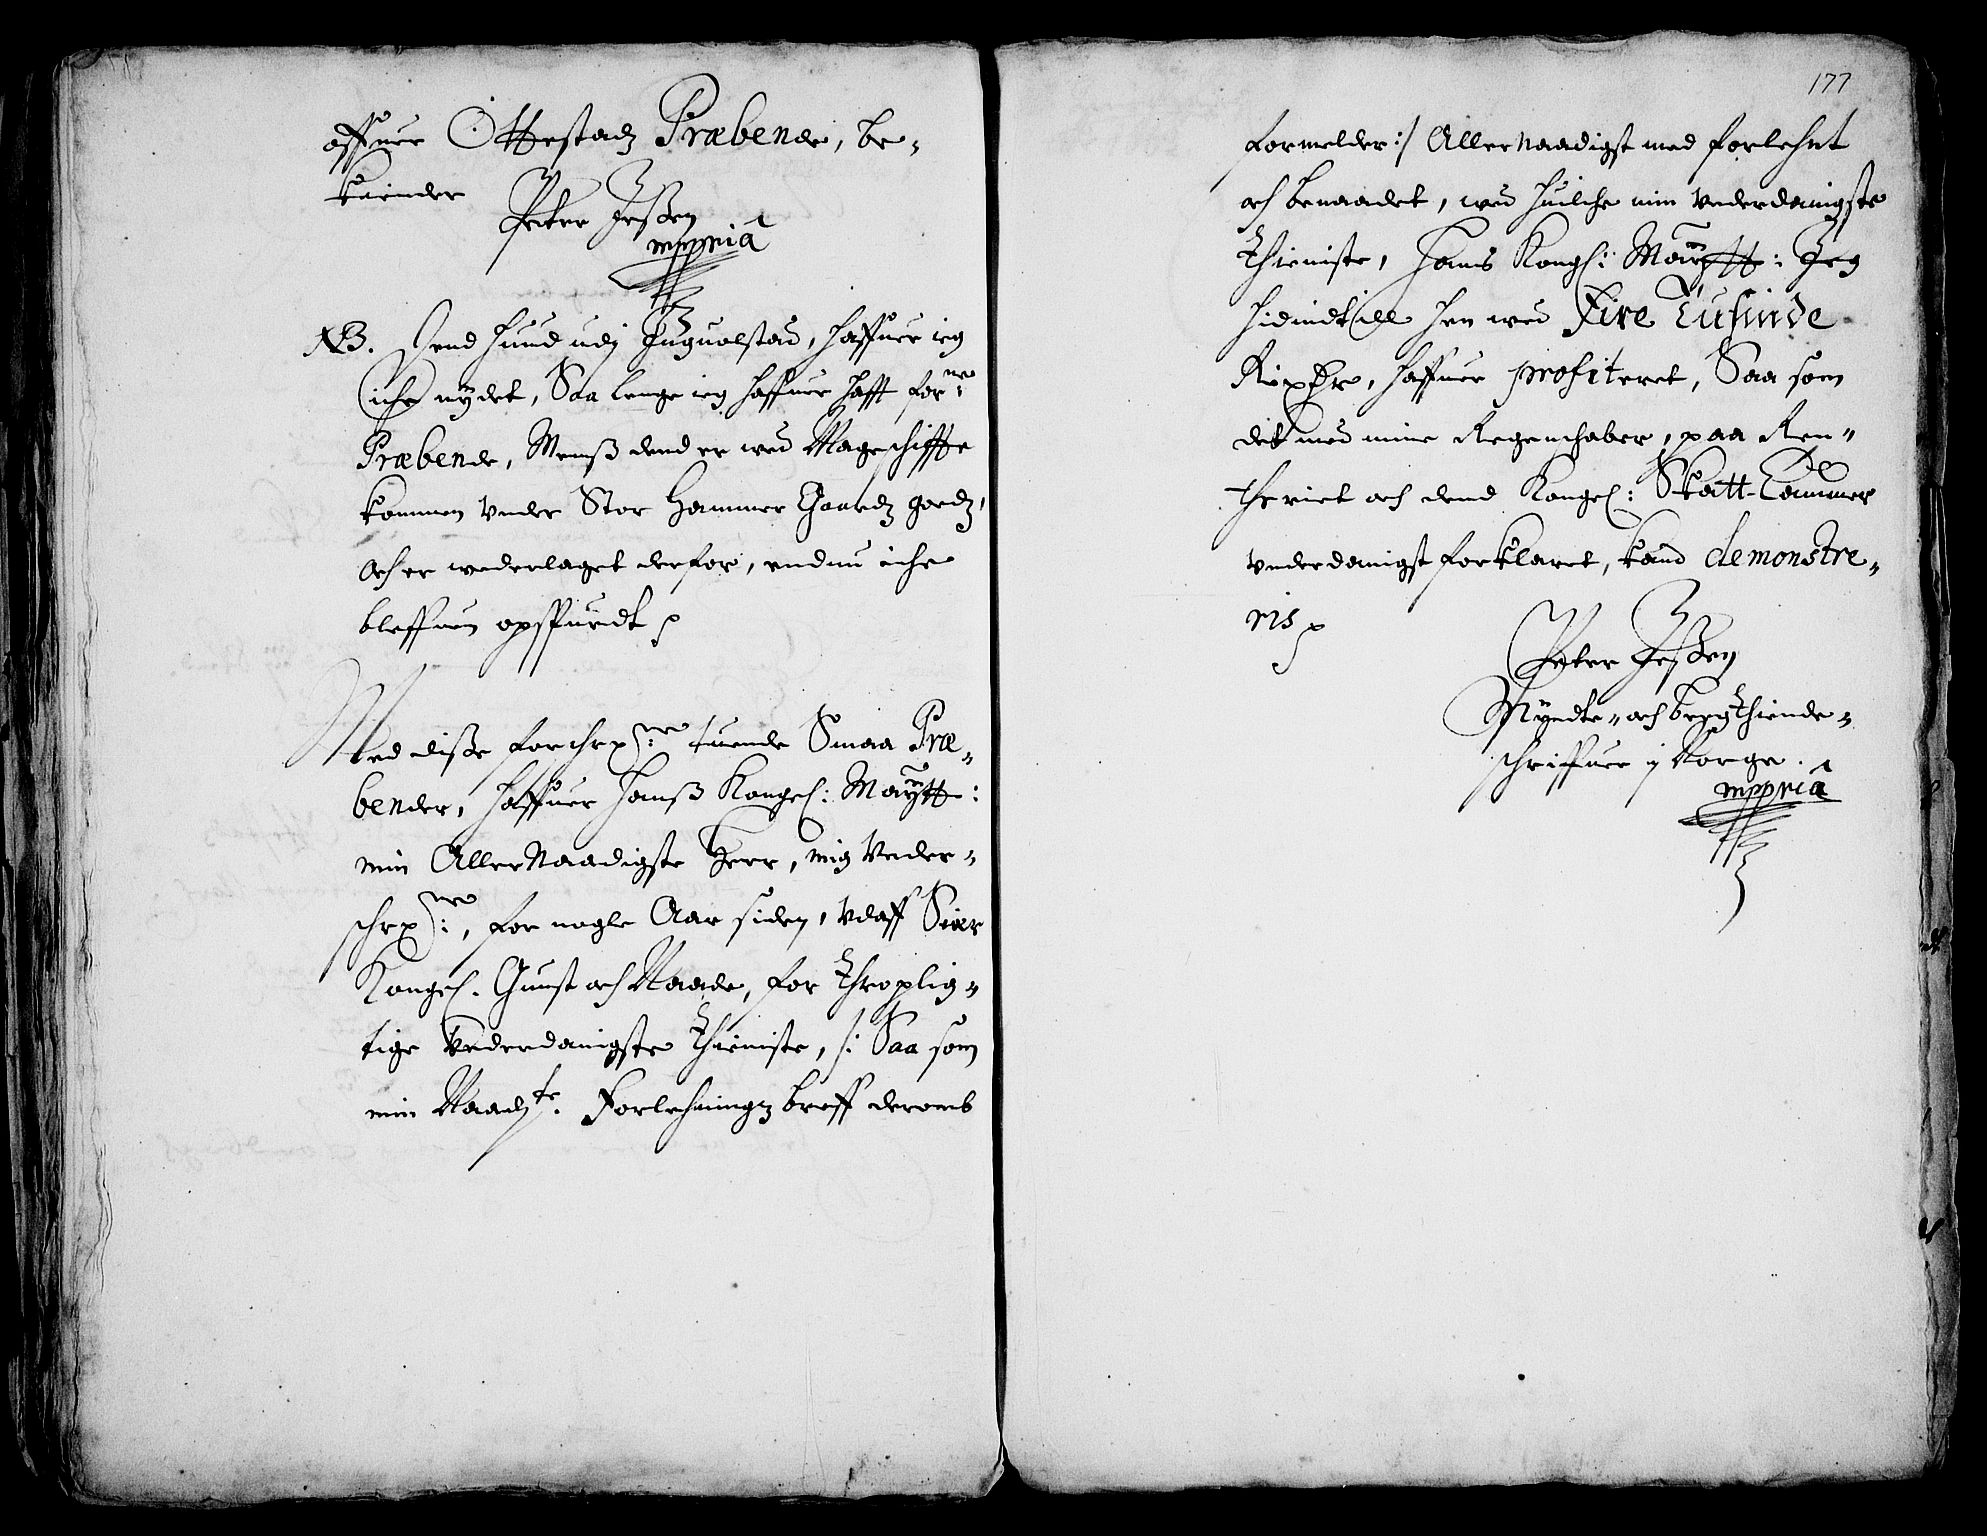 offuer Ottestadz Præbende, be-
kiender
Peter Jeßen
mppria
NB. Dend hund udj Inguolstad, haffuer ieg
iche nydet, Saa lenge ieg haffuer hafft for:ne
Præbende, Menß dend er wed Mageschiffte
kommen vnder Stor Hammer Gaardz goedz,
och er wederlaget derfor, endnu iche
bleffuen opspurdt
Med diße forschrp:ne tuende Smaa Præ-
bender, haffuer Hanß Kongel: Maÿtt:
min Allernaadigste Herr, mig Vnder-
schrp:ne, for nogle Aar siden, vdaff Sær
Kongel. Gunst och Naade, for throplig-
tige Vnderdanigste Thieniste, /: Saa som
min Naadte. Forlehningz breff deromb
177
formelder :/ Allernaadigst med forlehnt
och benaadet, wed huilche min vnderdanigste
Thieniste, Hans Kongl: Maÿtt: Jeg
hidindtill hen wed Fire Tusinde
Rixdr, haffuer profiteret, Saa som
det med mine Regenschaber, paa Ren-
theriet och dend Kongel: Skatt-Cammer
vnderdanigst forklaret, kand demonstre-
ris
Peter Jeßen
Myndte- och bergthiende-
schriffuer j Norge.
mppria